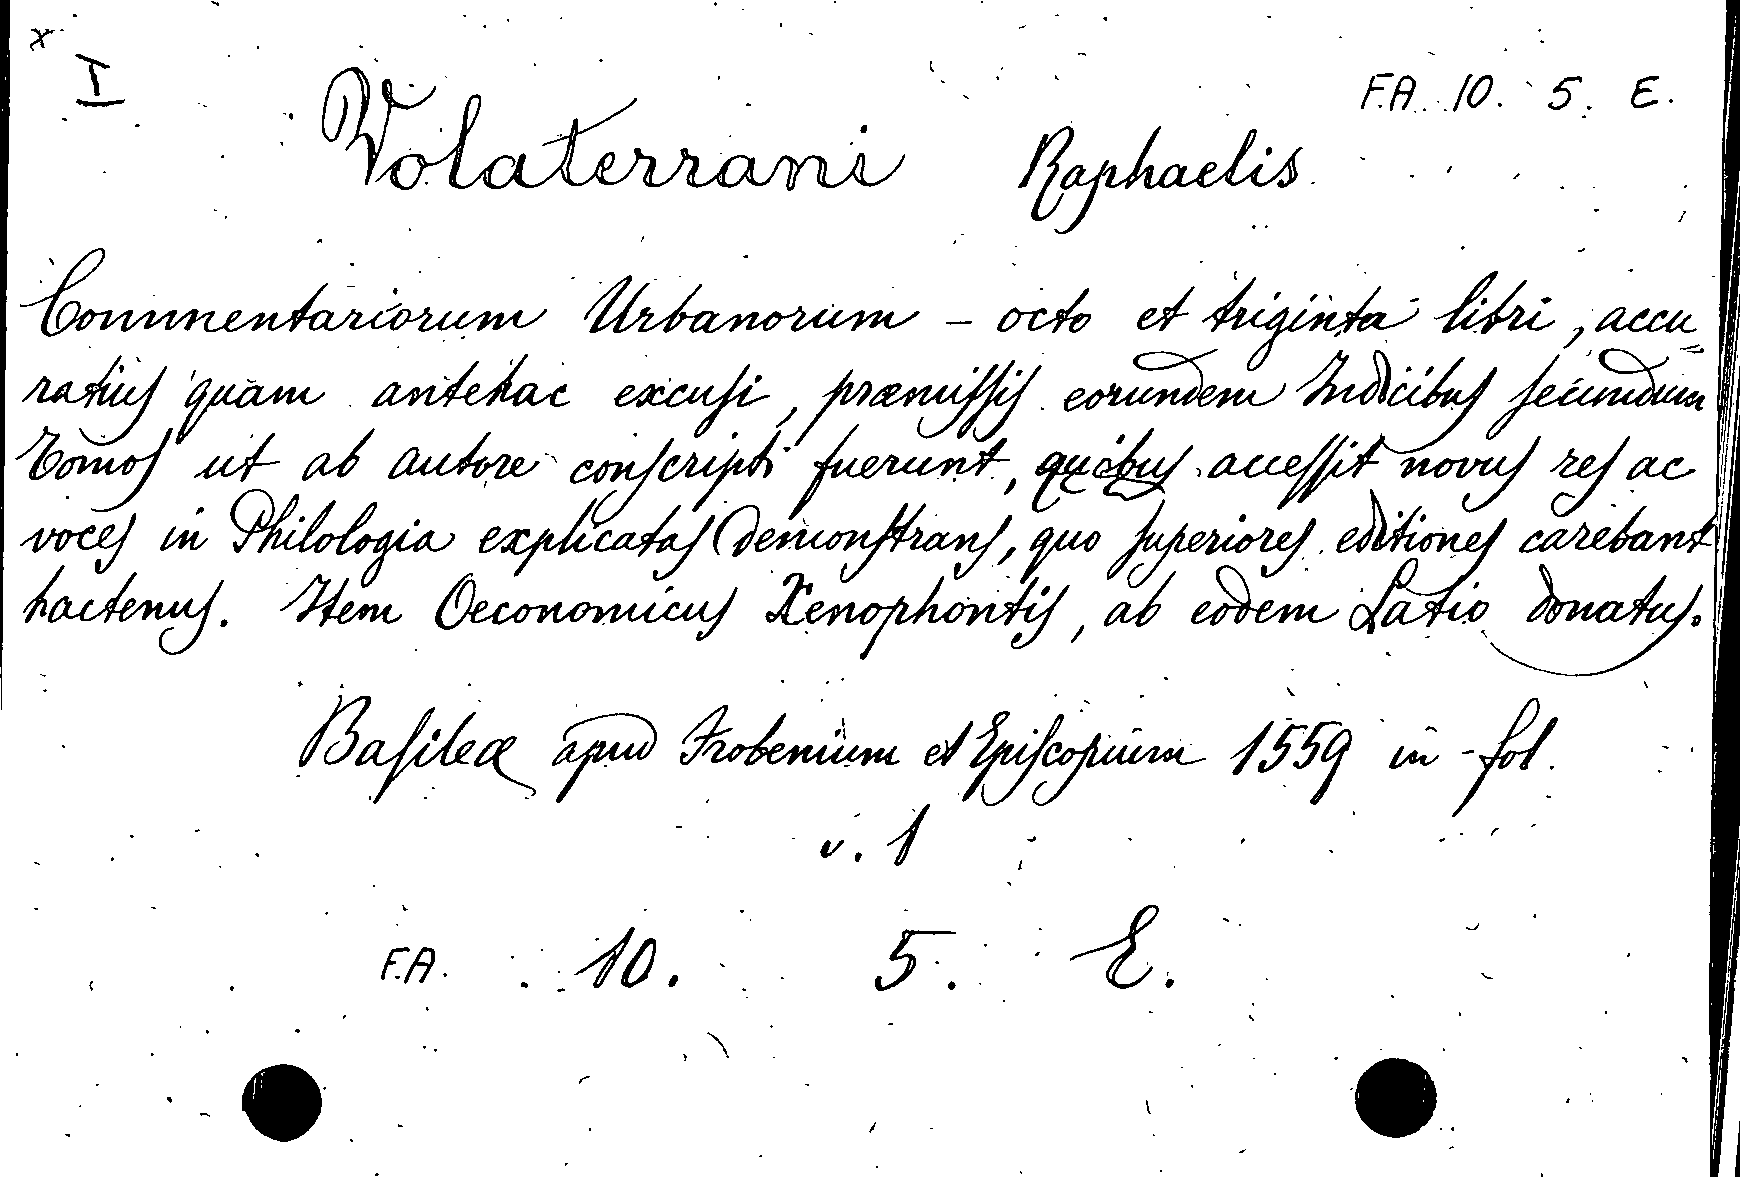 x
I
F.A. 10. 5. E.
Volaterrani Raphaelis
Commentariorum Urbanorum - octo et triginta libri, accu„
ratius quam antehac excusi, præmissis eorundem Indicibus secundum
Tomos ut ab autore conscripti fuerunt, quibus accessit novus res ac
voces in Philologia explicatas demonstrans, quo superiores editiones carebant
hactenus. Item Oeconomicus Xenophontis, ab eodem Latio donatus.
Basileæ apud Frobenium et Episcopium 1559 in-fol.
v. 1
F.A. 10. 5. E.